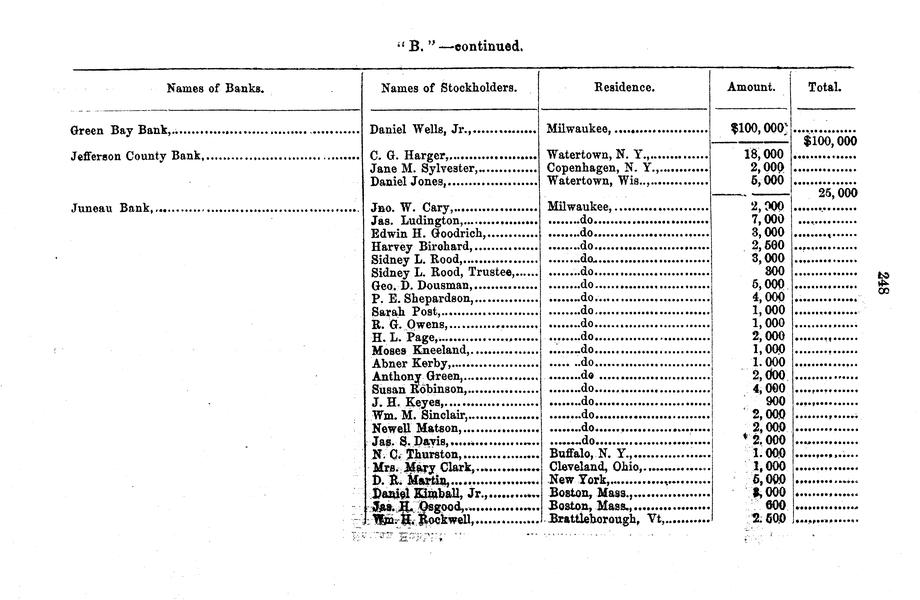 "B."—continued.
Names of Banks. Names of Stockholders. Residence. Amount. Total.
Green Bay Bank, Daniel Wells, Jr., Milwaukee, $100,000
$100,000
Jefferson County Bank, C. G. Harger, Watertown, N. Y., 18,000
Jane M. Sylvester, Copenhagen, N. Y., 2,000
Daniel Jones, Watertown, Wis., 5,000
25,000
Juneau Bank, Jno. W. Cary, Milwaukee,
Jas. Ludington, do 7,000
Edwin H. Goodrich, do 3,000
Harvey Birchard, do 2,500
Sidney L. Rood, do 3,000
Sidney L. Rood, Trustee, do 300
Geo. D. Dousman, do 5,000
P. E. Shepardson, do 4,000
Sarah Post, do 1,000
R. G. Owens, do 1,000
H. L. Page, do 2,000
Moses Kneeland, do 1,000
Abner Kerby, do 1.000
Anthony Green, do 2,000
Susan Robinson, do 4,000
J. H. Keyes, do 900
Wm. M. Sinclair, do 2,000
Newell Matson, do 2,000
Jas. S. Davis, do 2,000
N. C. Thurston, Buffalo, N. Y., 1.000
Mrs. Mary Clark, Cleveland, Ohio, 1,000
D. R. Martin, New York, 5,000
Daniel Kimball, Jr., Boston, Mass.,
Jas. H. Osgood, Boston, Mass., 600
Wm. H. Rockwell, Brattleborough, Vt, 2.500
248